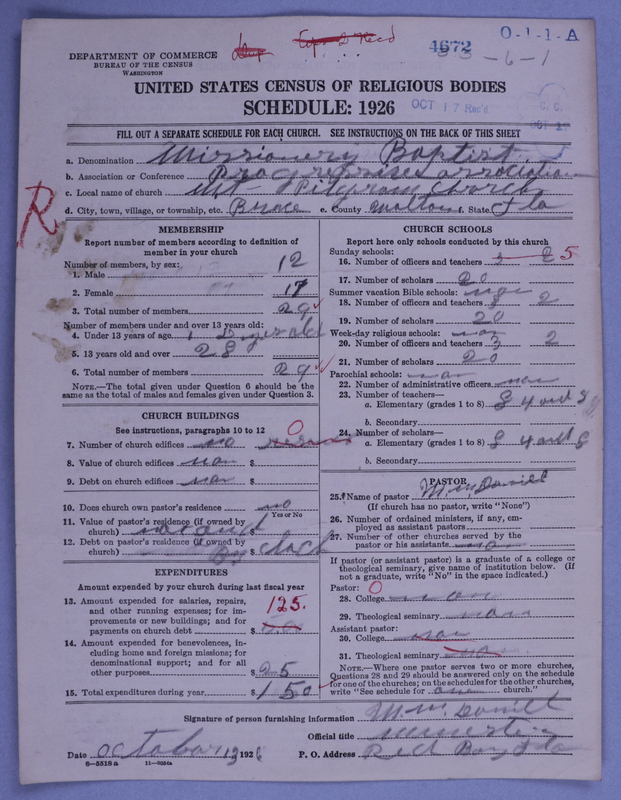 4672
O-1-1-A
DEPARTMENT OF COMMERCE
BUREAU OF THE CENSUS
WASHINGTON
33-6-1
UNITED STATES CENSUS OF RELIGIOUS BODIES
SCHEDULE: 1926
OCT 17 Rec'd
FILL OUT A SEPARATE SCHEDULE FOR EACH CHURCH. SEE INSTRUCTIONS ON THE BACK OF THIS SHEET
a. Denomination Missionery Baptist
b. Association or Conference association
c. Local name of church Mt Pilgrom Church
d. City, town, village, or township, etc. Bruce e. County Walton f. State Fla
R
MEMBERSHIP
Report number of members according to definition of
member in your church
Number of members, by sex:
1. Male 12
2. Female 17
3. Total number of members 29
Number of members under and over 13 years old:
4. Under 13 years of age 1
5. 13 years old and over 28
6. Total number of members 29
NOTE.—The total given under Question 6 should be the
same as the total of males and females given under Question 3.
CHURCH BUILDINGS
See instructions, paragraphs 10 to 12
7. Number of church edifices no 0
8. Value of church edifices non $
9. Debt on church edifices non $
10. Does church own pastor's residence no
Yes or No
11. Value of pastor's residence (if owned by
church) $
12. Debt on pastor's residence (if owned by
church) $
EXPENDITURES
Amount expended by your church during last fiscal year
13. Amount expended for salaries, repairs,
and other running expenses; for im-
provements or new buildings; and for
payments on church debt $ 125.
14. Amount expended for benevolences, in-
cluding home and foreign missions; for
denominational support; and for all
other purposes $ 25
15. Total expenditures during year $ 150
CHURCH SCHOOLS
Report here only schools conducted by this church
Sunday schools:
16. Number of officers and teachers 3 2 5
17. Number of scholars 20
Summer vacation Bible schools: non
18. Number of officers and teachers 3 2
19. Number of scholars 20
Week-day religious schools: non
20. Number of officers and teachers 3 2
21. Number of scholars 20
Parochial schools: non
22. Number of administrative officers non
23. Number of teachers—
a. Elementary (grades 1 to 8) 8 4 and
b. Secondary
24. Number of scholars—
a. Elementary (grades 1 to 8) 8 4 and
b. Secondary
PASTOR
25. Name of pastor M. McDaniel
(If church has no pastor, write "None")
26. Number of ordained ministers, if any, em-
ployed as assistant pastors
27. Number of other churches served by the
pastor or his assistants non
If pastor (or assistant pastor) is a graduate of a college or
theological seminary, give name of institution below. (If
not a graduate, write "No" in the space indicated.)
Pastor: 0
28. College non
29. Theological seminary non
Assistant pastor:
30. College non
31. Theological seminary non
NOTE.—Where one pastor serves two or more churches,
Questions 28 and 29 should be answered only on the schedule
for one of the churches; on the schedules for the other churches,
write "See schedule for one church."
Signature of person furnishing information M. McDaniel
Official title minister
Date October 13 1926 P. O. Address Red Bay Fla
6-5518a 11-9034a